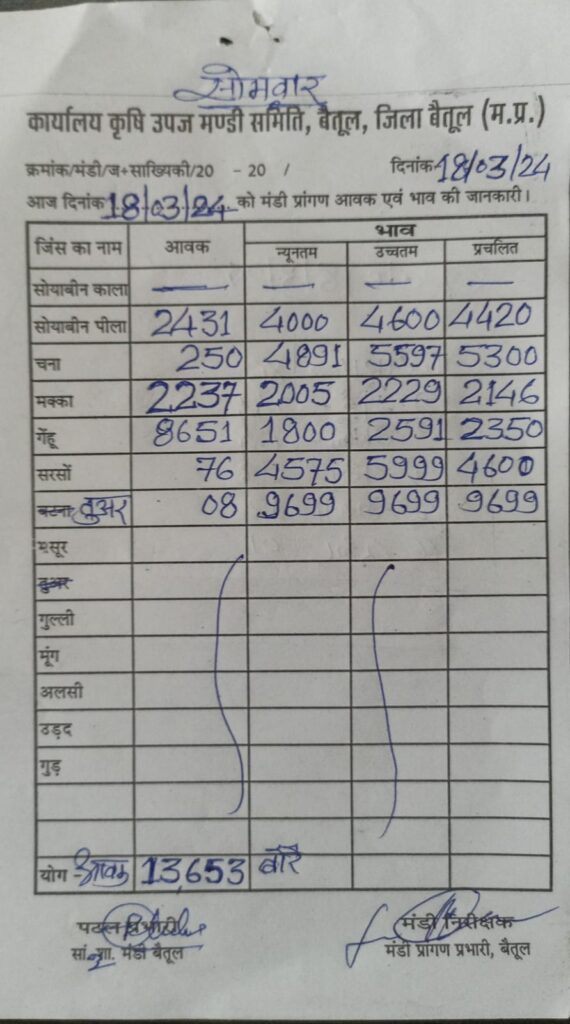 सोमवार
कार्यालय कृषि उपज मण्डी समिति, बैतूल, जिला बैतूल (म.प्र.)
क्रमांक/मंडी/ज+साख्यिकी/20 - 20 / दिनांक 18/03/24
आज दिनांक 18/03/24 को मंडी प्रांगण आवक एवं भाव की जानकारी।
जिंस का नाम आवक भाव
न्यूनतम उच्चतम प्रचलित
सोयाबीन काला — — — —
सोयाबीन पीला 2431 4000 4600 4420
चना 250 4891 5597 5300
मक्का 2237 2005 2229 2146
गेंहू 8651 1800 2591 2350
सरसों 76 4575 5999 4600
बटना तुअर 08 9699 9699 9699
मसूर
तुअर
गुल्ली
मूंग
अलसी
उड़द
गुड़
योग - आवक 13,653 बोरे
प्रभारी मंडी निरीक्षक
सां. शा. मंडी बैतूल मंडी प्रांगण प्रभारी, बैतूल